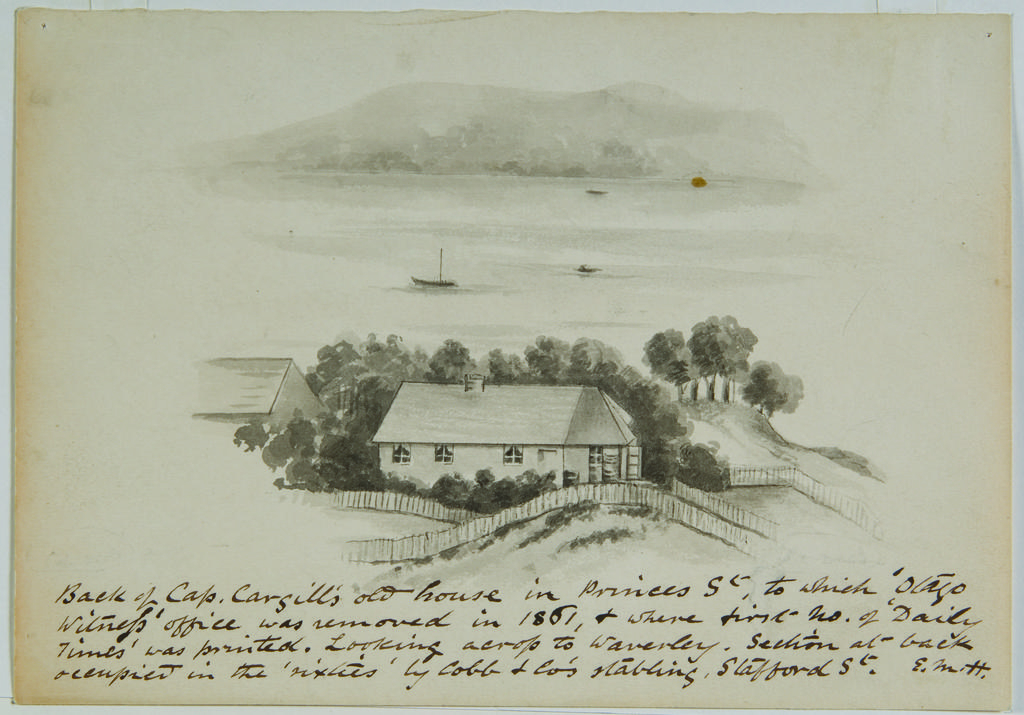 Back of Cap. Cargill's old house in Princes St, to which 'Otago
Witness' office was removed in 1861, & where first no. of 'Daily
Times' was printed. Looking across to Waverley. Section at back
occupied in the 'sixties' by Cobb & Co's stabling, Stafford St. E.M.H.